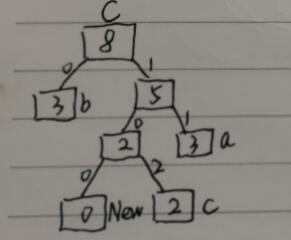 C
8
0 1
3 b 5
0 1
2 3 a
0 2
0 New 2 C